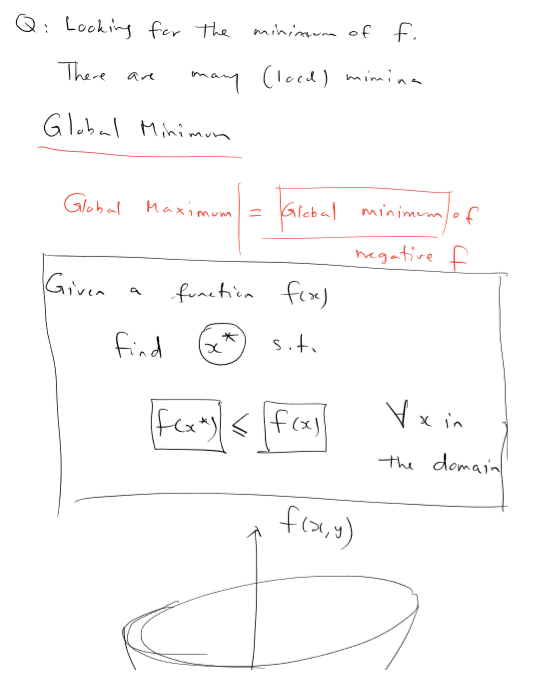 Q: Looking for the minimum of f.
There are many (local) mimina
Global Minimum
Global Maximum = Global minimum of
negative f
Given a function f(x)
find x* s.t.
f(x*) ⩽ f(x) ∀ x in
the domain
f(x,y)